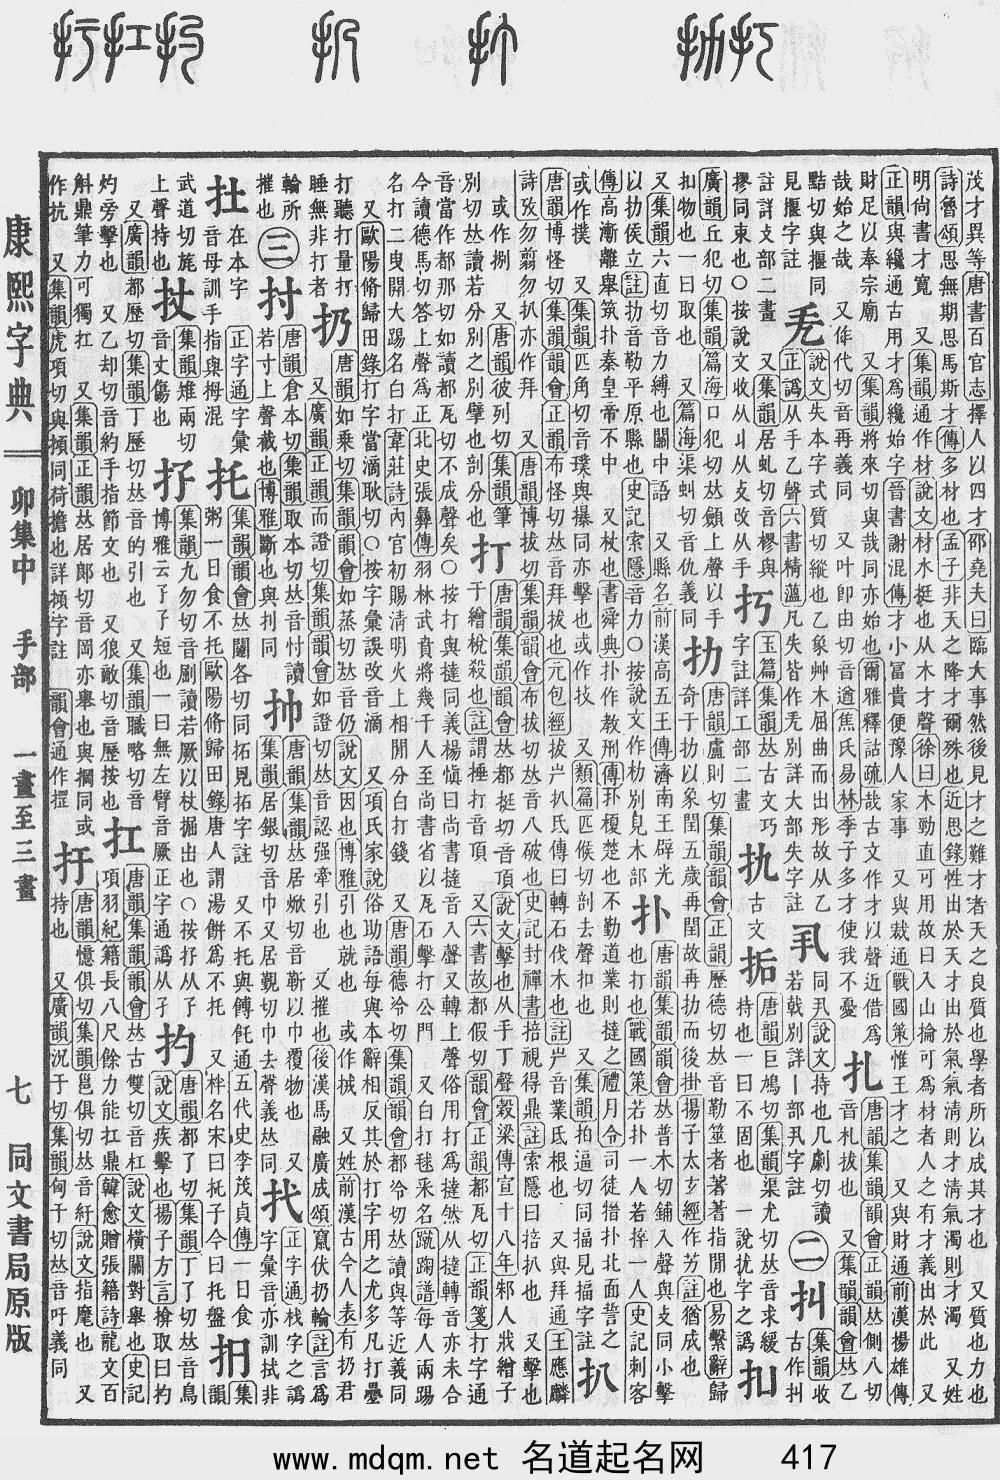 康熙字典　卯集中　手部　一畫至三畫　七　同文書局原版
茂才異等唐書百官志擇人以四才邵堯夫曰臨大事然後見才之難才者天之良質也學者所以成其才也　又質也力也
詩魯頌思無期思馬斯才傳多材也孟子非天之降才爾殊也近思錄性出於天才出於氣氣清則才清氣濁則才濁　又姓
明尚書才寬　又集韻通作材說文材木挺也从木才聲徐曰木勁直可用故曰入山掄可爲材者人之有才義出於此　又
正韻與纔通古用才爲纔始字晉書謝混傳才小富貴便豫人家事　又與裁通戰國策惟王才之　又與財通前漢揚雄傳
財足以奉宗廟　又集韻將來切與哉同亦始也爾雅釋詁疏哉古文作才以聲近借爲　扎　唐韻集韻韻會正韻𠀤側八切
哉始之哉　又侔代切音再義同　又叶卽由切音遒焦氏易林季子多才使我不憂　音札拔也　又集韻韻會𠀤乙
黠切與揠同　說文失本字式質切縱也乙象艸木屈曲而出形故从乙　同丮說文持也几劇切讀　二　集韻收
見揠字註　正譌从手乙聲六書精薀凡失皆作　別詳大部失字註　若戟別詳丨部丮字註　古作
註詳攴部二畫　又集韻居虬切音樛與　玉篇集韻𠀤古文巧　扏　古文　唐韻巨鳩切集韻渠尤切𠀤音求緩　扣
摎同束也〇按說文收从丩从攴改从手　字註詳工部二畫　持也一曰不固也　一說扰字之譌
廣韻丘犯切集韻篇海口犯切𠀤頗上聲以手　扐　唐韻盧則切集韻韻會正韻歷德切𠀤音勒筮者著蓍指閒也易繫辭歸
扣物也一曰取也　又篇海渠虯切音仇義同　奇于扐以象閏五歲再閏故再扐而後掛揚子太玄經作芳註猶成也
又集韻六直切音力縛也關中語　又縣名前漢高五王傳濟南王辟光　扑　唐韻集韻韻會𠀤普木切鋪入聲與攴同小擊
以扐侯立註扐音勒平原縣也史記索隱音力〇按說文作朸別見木部　也打也戰國策若扑一人若捽一人史記刺客
傳高漸離舉筑扑秦皇帝不中　又杖也書舜典扑作敎刑傳扑榎楚也不勤道業則撻之禮月令司徒搢扑北面誓之
或作撲　又集韻匹角切音璞與㩧同亦擊也或作技　又類篇匹候切剖去聲扣也　又集韻拍逼切同揊見揊字註　扒
唐韻博怪切集韻韻會正韻布怪切𠀤音拜拔也元包經拔屵扒氏傳曰轉石伐木也註屵音業氐根也　又與拜通王應麟
詩攷勿翦勿扒亦作拜　又唐韻博拔切集韻韻會布拔切𠀤音八破也史記封禪書掊視得鼎註索隱曰掊扒也　又擊也
或作捌　又唐韻彼列切集韻筆　打　唐韻集韻韻會𠀤都挺切音頂說文擊也从手丁聲穀梁傳宣十八年邾人戕繒子
別切𠀤讀若分別之別擘也剖分也　于繒梲殺也註謂捶打音頂　又六書故都假切韻會正韻都瓦切正韻箋打字通
音當作都那切如讀都瓦切不成聲矣〇按打與撻同義楊愼曰尚書撻音入聲又轉上聲俗用打爲撻然从撻轉音亦未合
今讀德馬切答上聲爲正北史張彝傳羽林武賁將幾千人至尚書省以瓦石擊打公門　又白打毬采名蹴踘譜每人兩踢
名打二曳開大踢名白打韋莊詩內官初賜清明火上相閒分白打錢　又唐韻德冷切集韻韻會都冷切𠀤讀與等近義同
又歐陽脩歸田錄打字當滴耿切〇按字彙誤改音滴　又項氏家說俗助語每與本辭相反其於打字用之尤多凡打疊
打聽打量打　扔　唐韻如乗切集韻韻會如蒸切𠀤音仍說文因也博雅引也就也　或作㧈　又姓前漢古今人表有扔君
睡無非打者　又廣韻正韻而證切集韻韻會如證切𠀤音認强牽引也　又摧也後漢馬融廣成頌竄伏扔輪註言爲
輪所　三　扚　唐韻倉本切集韻取本切𠀤音忖讀　唐韻集韻𠀤居焮切音靳以巾覆物也　又　正字通栈字之譌
摧也　若寸上聲截也博雅斷也與刌同　集韻居銀切音巾又居覲切巾去聲義𠀤同　字彙音亦訓拭非
在本字　正字通字彙　托　集韻韻會𠀤闥各切同拓見拓字註　又不托與餺飥通五代史李茂貞傳一日食　扪　集
音母訓手指與拇混　粥一日食不托歐陽脩歸田錄唐人謂湯餅爲不托　又柞名宋曰托子今曰托盤　韻
武道切旄　扙　集韻雉兩切　扜　集韻九勿切音劂讀若厥以杖掘出也〇按扜从子　扚　唐韻都了切集韻丁了切𠀤音鳥
上聲持也　音丈傷也　博雅云孒孑短也一曰無左臂音厥正字通譌从孑　說文疾擊也揚子方言掩取曰扚
又廣韻都歷切集韻丁歷切𠀤音的引也　又集韻職略切音　扛　唐韻集韻韻會𠀤古雙切音杠說文橫關對舉也史記
灼旁擊也　又乙却切音約手指節文也　又狼敵切音歷按也　項羽紀籍長八尺餘力能扛鼎韓愈贈張籍詩龍文百
斛鼎筆力可獨扛　又集韻正韻𠀤居郎切音岡亦舉也與掆同或　扜　唐韻憶俱切集韻邕俱切𠀤音紆說文指麾也　又
作抗　又集韻虎項切與㧥同荷擔也詳㧥字註　韻會通作摼　持也　又廣韻況于切集韻匈于切𠀤音吁義同
www.mdqm.net 名道起名网　417